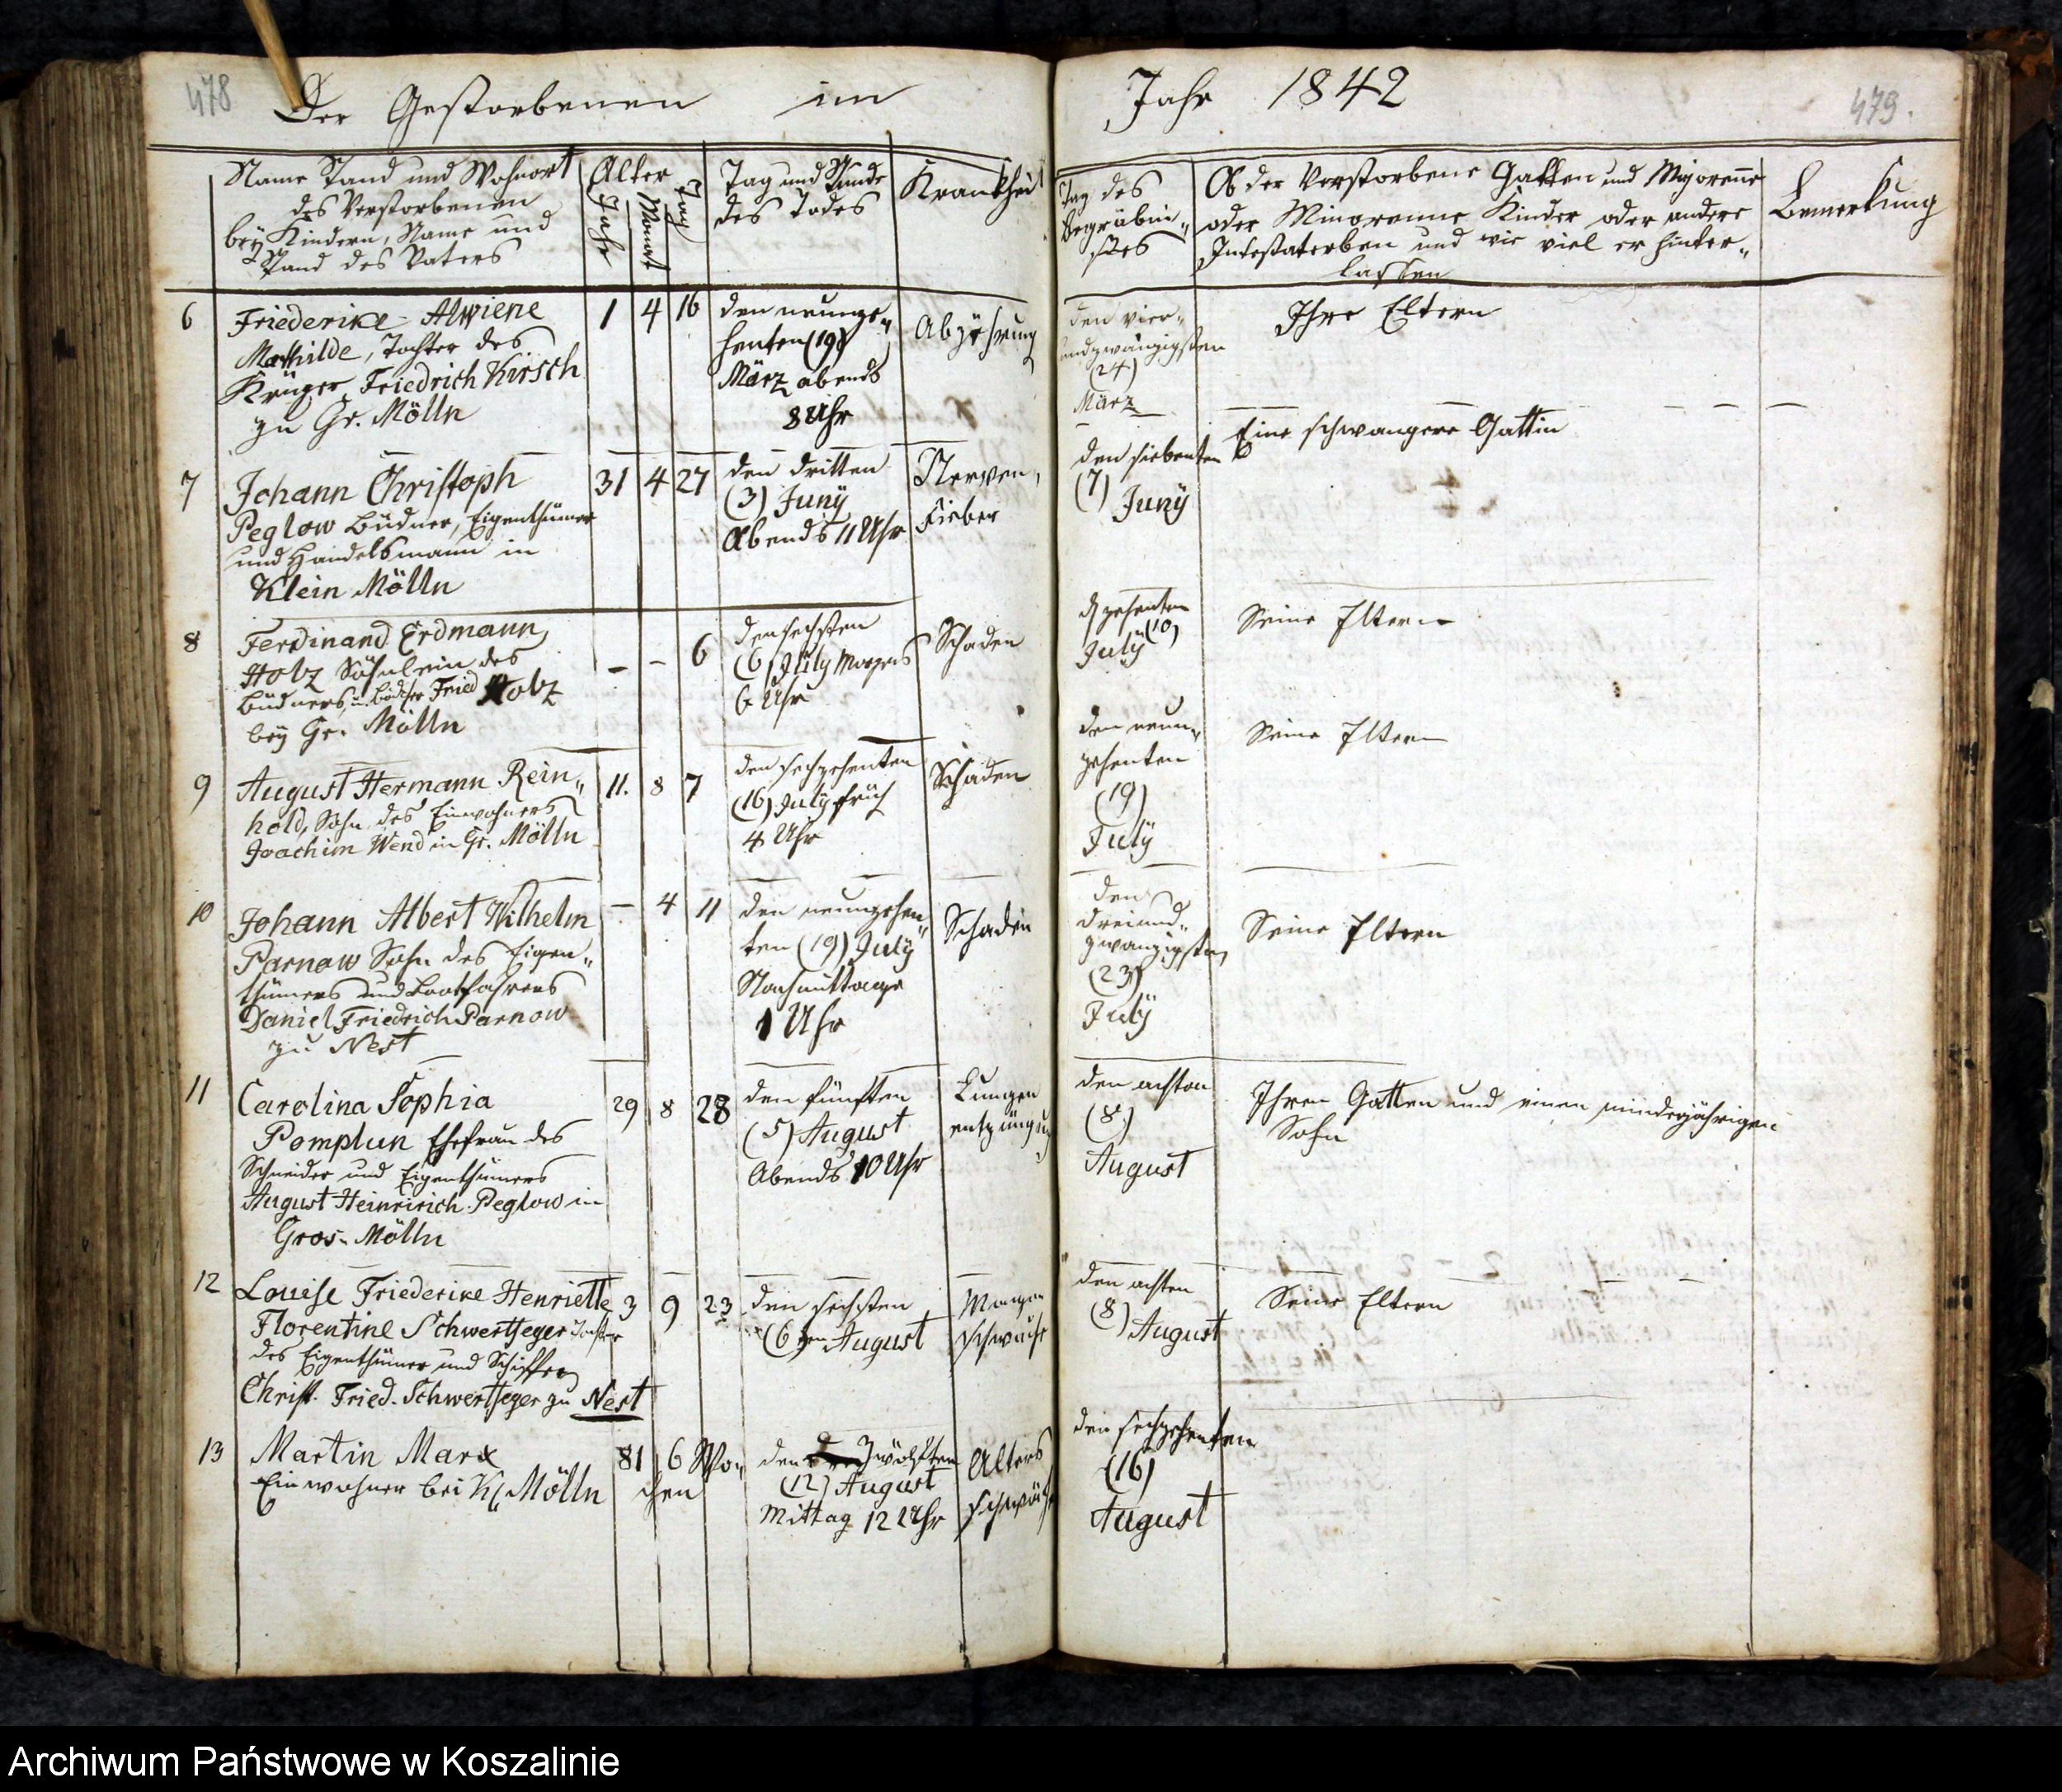 478
Der Gestorbenen im
Name Stand und Wohnort
des Verstorbenen
bey Kindern, Name und
Stand des Vaters
Alter
Jahr
Monat
Tag
Tag und Stunde
des Todes
Krankheit
6
Friederike Alwiene
Mathilde, Tochter des
Krüger Friedrich Kirsch
zu Gr. Mölln
1
4
16
den neunze„
henten (19)
März abends
8 Uhr
Abzehrung
7
Johann Christoph
Peglow Büdner, Eigenthümer
und Handelsmann in
Klein Mölln
31
4
27
den dritten
(3) Juny
Abends 11 Uhr
Nerven
Fieber
8
Ferdinand Erdmann
Holz Söhnlein des
Büdners u. Fried Holz
bey Gr. Mölln
–
–
6
den sechsten
(6) July Morgens
6 Uhr
Schaden
9
August Hermann Rein„
hold, Sohn des Einwohners
Joachim Wend in Gr. Mölln
11.
8
7
den sechzehenten
(16) July früh
4 Uhr
Schaden
10
Johann Albert Wilhelm
Parnow Sohn des Eigen„
thümers und Bootfahrers
Daniel Friedrich Parnow
zu Nest
–
4
11
den neunzehen„
ten (19) July
Nachmittage
1 Uhr
Schaden
11
Carolina Sophia
Pomplun Ehefrau des
Schneider und Eigenthümers
August Heinririch Peglow in
Gros- Mölln
29
8
28
den fünften
(5) August
Abends 10 Uhr
Lungen
12
Louise Friederike Henriette
Florentine Schwertfeger Tochter
des Eigenthümer und Schiffer
Christ. Fried. Schwertfeger zu Nest
3
9
23
den sechsten
(6ten August
13
Martin Marx
Einwohner bei Kl Mölln
81
6 Wo„
chen
den Zwölften
(12) August
Mittag 12 Uhr
Alters
schwäche
Jahr 1842
479.
Tag des
Begräbni„
ßes
Ob der Verstorbene Gatten und Majorenne
oder Minorenne Kinder oder andere
Intestaterben und wie viel er hinter„
lassen
Bemerkung
den vier„
undzwanzigsten
(24)
März
Ihre Eltern
den siebenten
(7) Juny
Eine schwangere Gattin
d zehenten
(10)
July
Seine Eltern
den neun„
zehenten
(19)
July
Seine Eltern
den
dreiund„
zwanzigsten
(23)
July
Seine Eltern
den achten
(8)
August
Ihren Gatten und einen minderjährigen
Sohn
den achten
(8) August
Seine Eltern
den sechzehenten
(16)
August
Archiwum Państwowe w Koszalinie